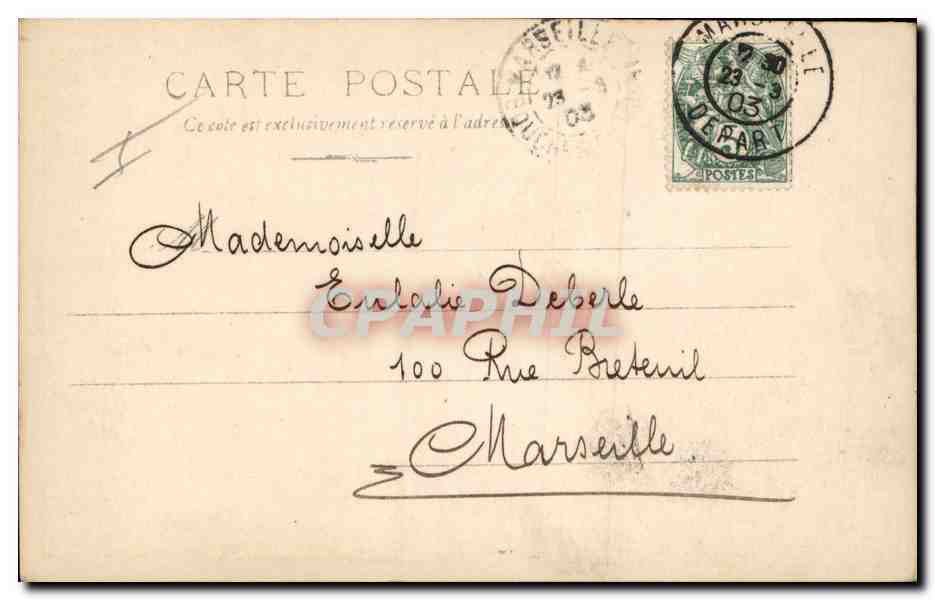 CARTE POSTALE
Ce côté est exclusivement réservé à l'adresse
MARSEILLE
12
23 -3
03
MARSEILLE
12 30
23 -3
03
DEPART
POSTES
Mademoiselle
Eulalie Deberle
CPAPHIL
100 Rue Breteuil
Marseille